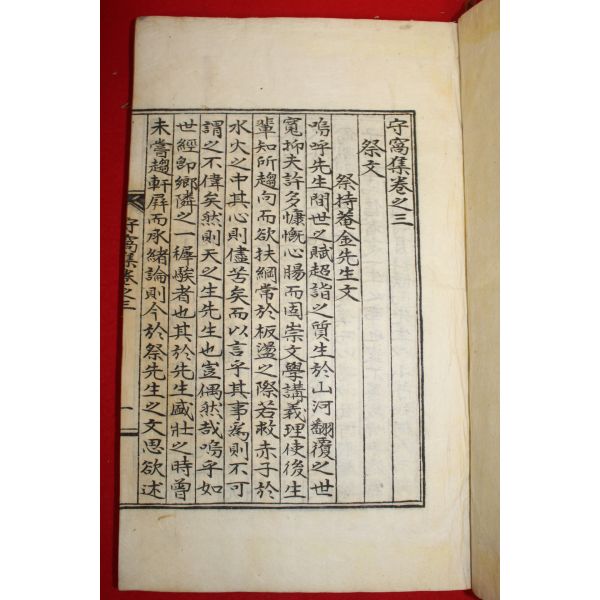 守窩集卷之三
祭文
祭持菴金先生文
嗚呼先生間世之賦超詣之質生於山河翻覆之世
寃抑夫許多慷慨心腸而固崇文學講義理使後生
輩知所趨向而欲扶綱常於板蕩之際若救赤子於
水火之中其心則儘苦矣而以言乎其事爲則不可
謂之不偉矣然則天之生先生也豈偶然哉嗚乎如
世經卽鄕隣之一穉騃者也其於先生盛壯之時曾
未嘗趨軒屛而承緖論則今於祭先生之文思欲述
守窩集卷之三
一